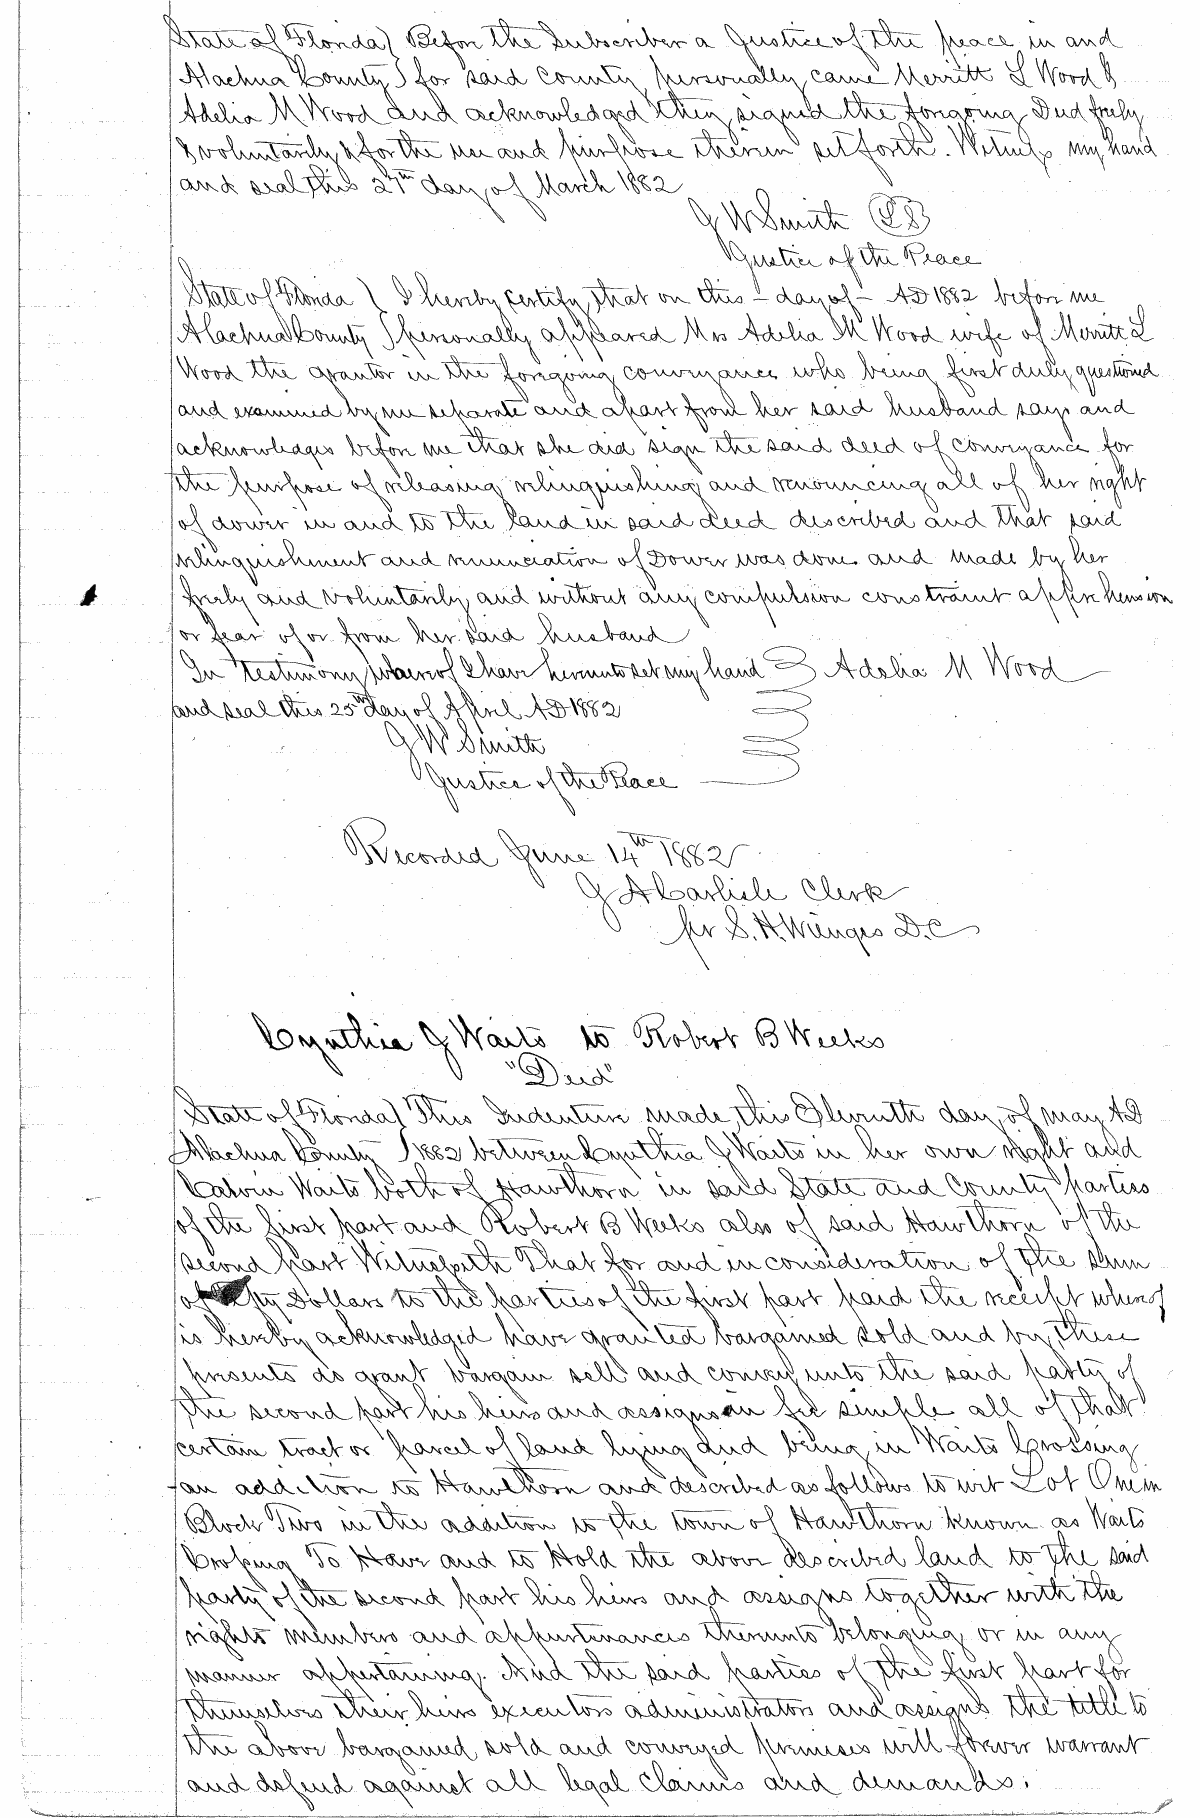 State of Florida) Before the Subscriber a Justice of the peace in and
Alachua County) for said county personally came Merritt L Wood &
Adelia M Wood and acknowledged they signed the forgoing Deed freely
& voluntarily & for the use and purpose therein set forth. Witness my hand
and seal this 27th day of March 1882
G W Smith (LS)
Justice of the Peace
State of Florida ( I hereby certify that on this - day of - AD 1882 before me
Alachua County ) personally appeared Mrs Adelia M Wood wife of Merritt L
Wood the grantor in the foregoing conveyance who being first duly questioned
and examined by me separate and apart from her said husband says and
acknowledges before me that she did sign the said deed of conveyance for
the purpose of releasing relinquishing and renouncing all of her right
of dower in and to the land in said deed described and that said
relinquishment and renunciation of Dower was done and made by her
freely and voluntarily and without any compulsion constraint apprehension
or fear of or from her said husband
In testimony whereof I have hereunto set my hand Adelia M Wood
and seal this 25th day of April AD 1882
G W Smith
Justice of the Peace
Recorded June 14th 1882
J A Carlisle Clerk
per S. H. Wienges D.C
Cynthia J Waits to Robert B Weeks
"Deed"
State of Florida) This Indenture made this Eleventh day of may AD
Alachua County ) 1882 between Cynthia J Waits in her own right and
Calvin Waits both of Hawthorn in said State and County parties
of the first part and Robert B Weeks also of said Hawthorn of the
second part Witnesseth That for and in consideration of the Sum
of Dollars to the parties of the first part paid the receipt whereof
is hereby acknowledged have granted bargained sold and by these
presents do grant bargain sell and convey unto the said party of
the second part his heirs and assigns in fee simple all of that
certain tract or parcel of land lying and being in Waits Crossing
an addition to Hawthorn and described as follows to wit Lot One in
Block Two in the addition to the town of Hawthorn known as Waits
Crossing To Have and to Hold the above described land to the said
party of the second part his heirs and assigns together with the
rights members and appurtenances thereunto belonging or in any
manner appertaining. And the said parties of the first part for
themselves their heirs executors administrators and assigns the title to
the above bargained sold and conveyed premises will forever warrant
and defend against all legal claims and demands.